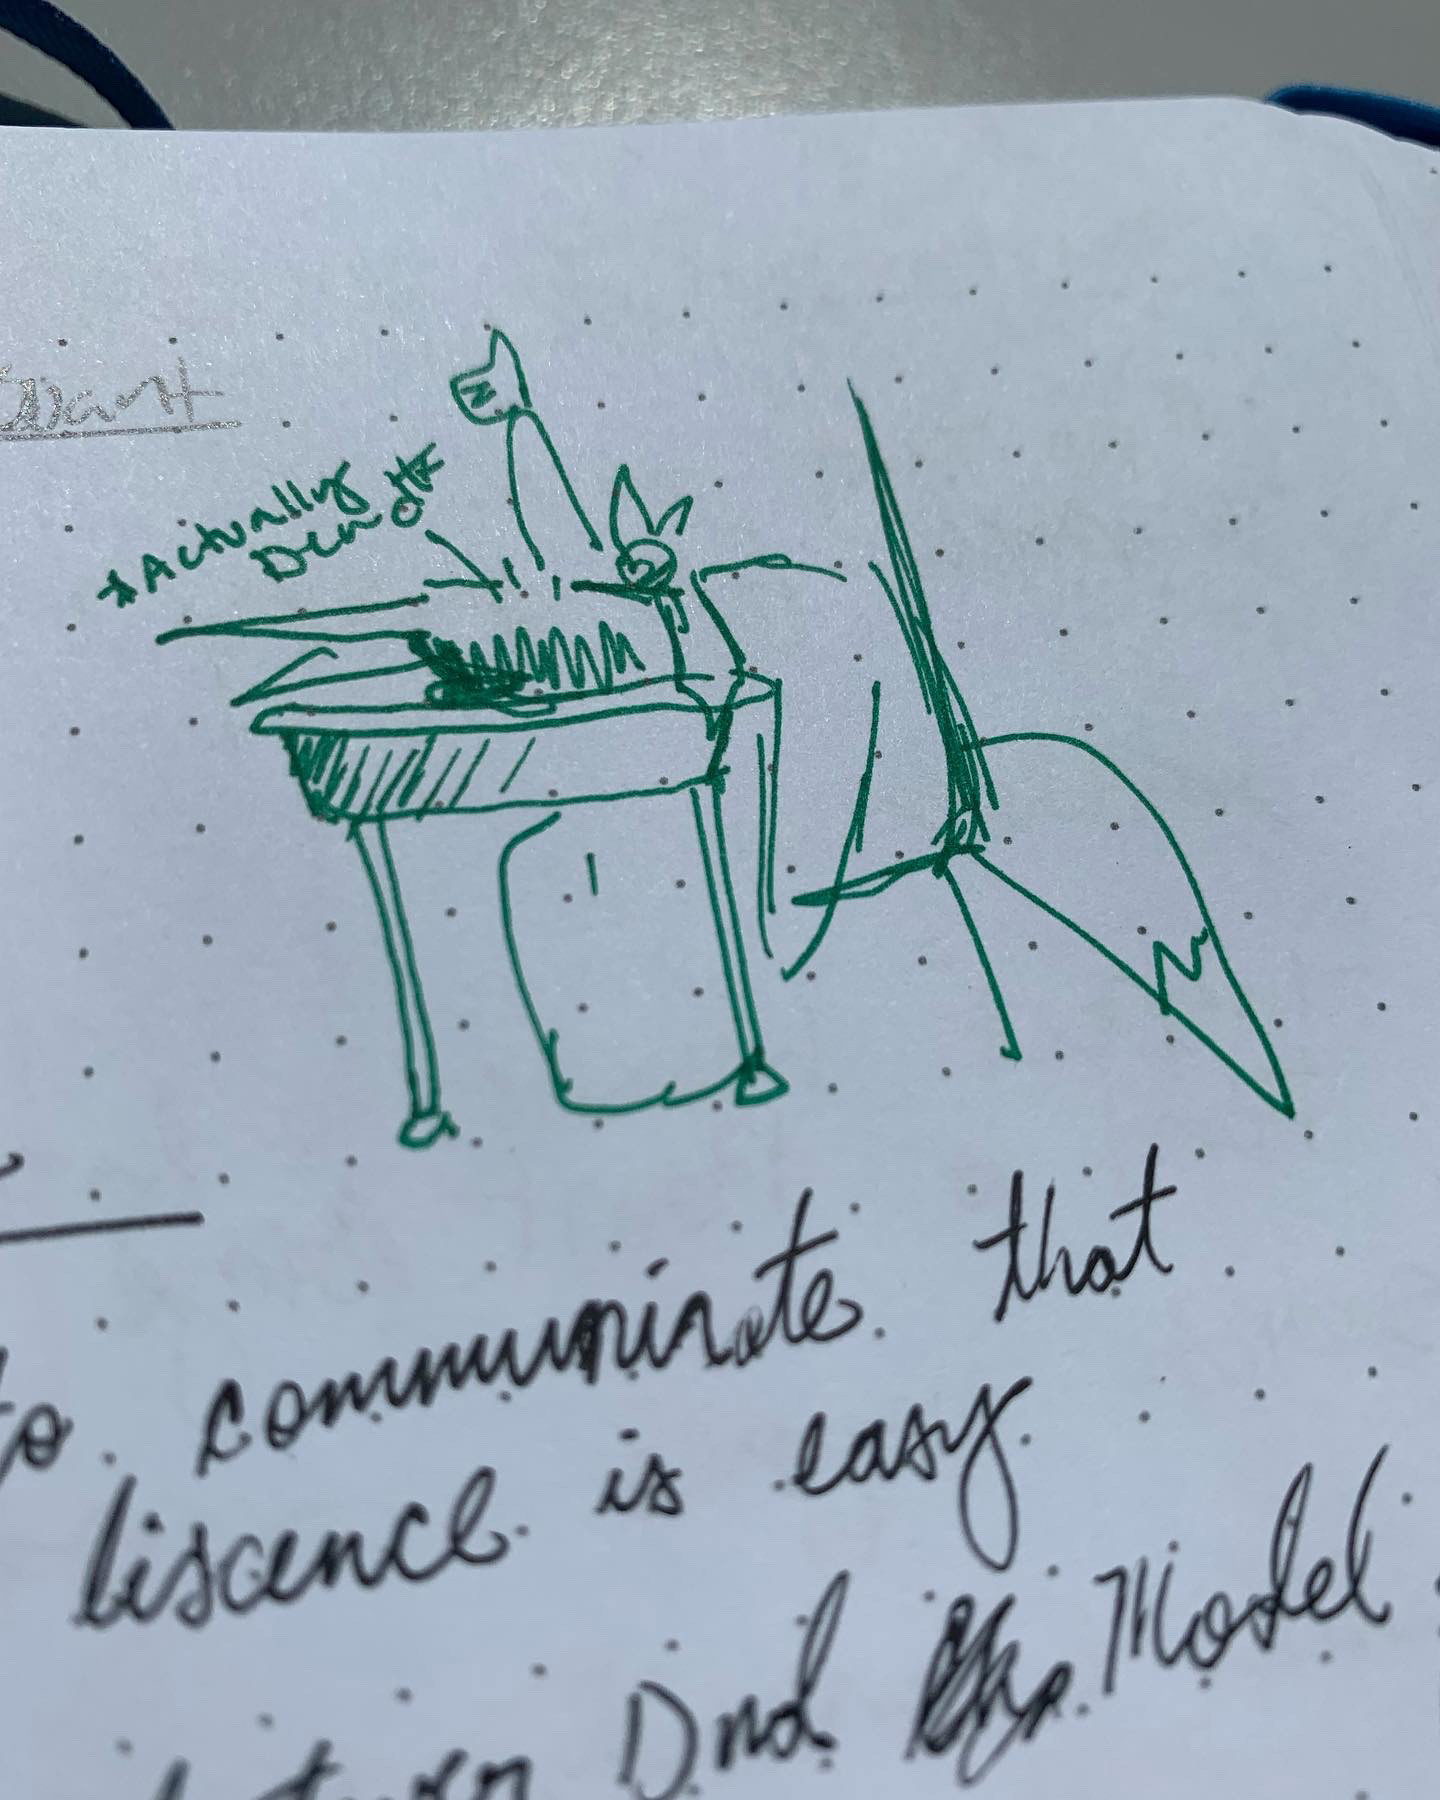 *Actually
Dead*
to communicate that
liscence is easy
Dnd Model